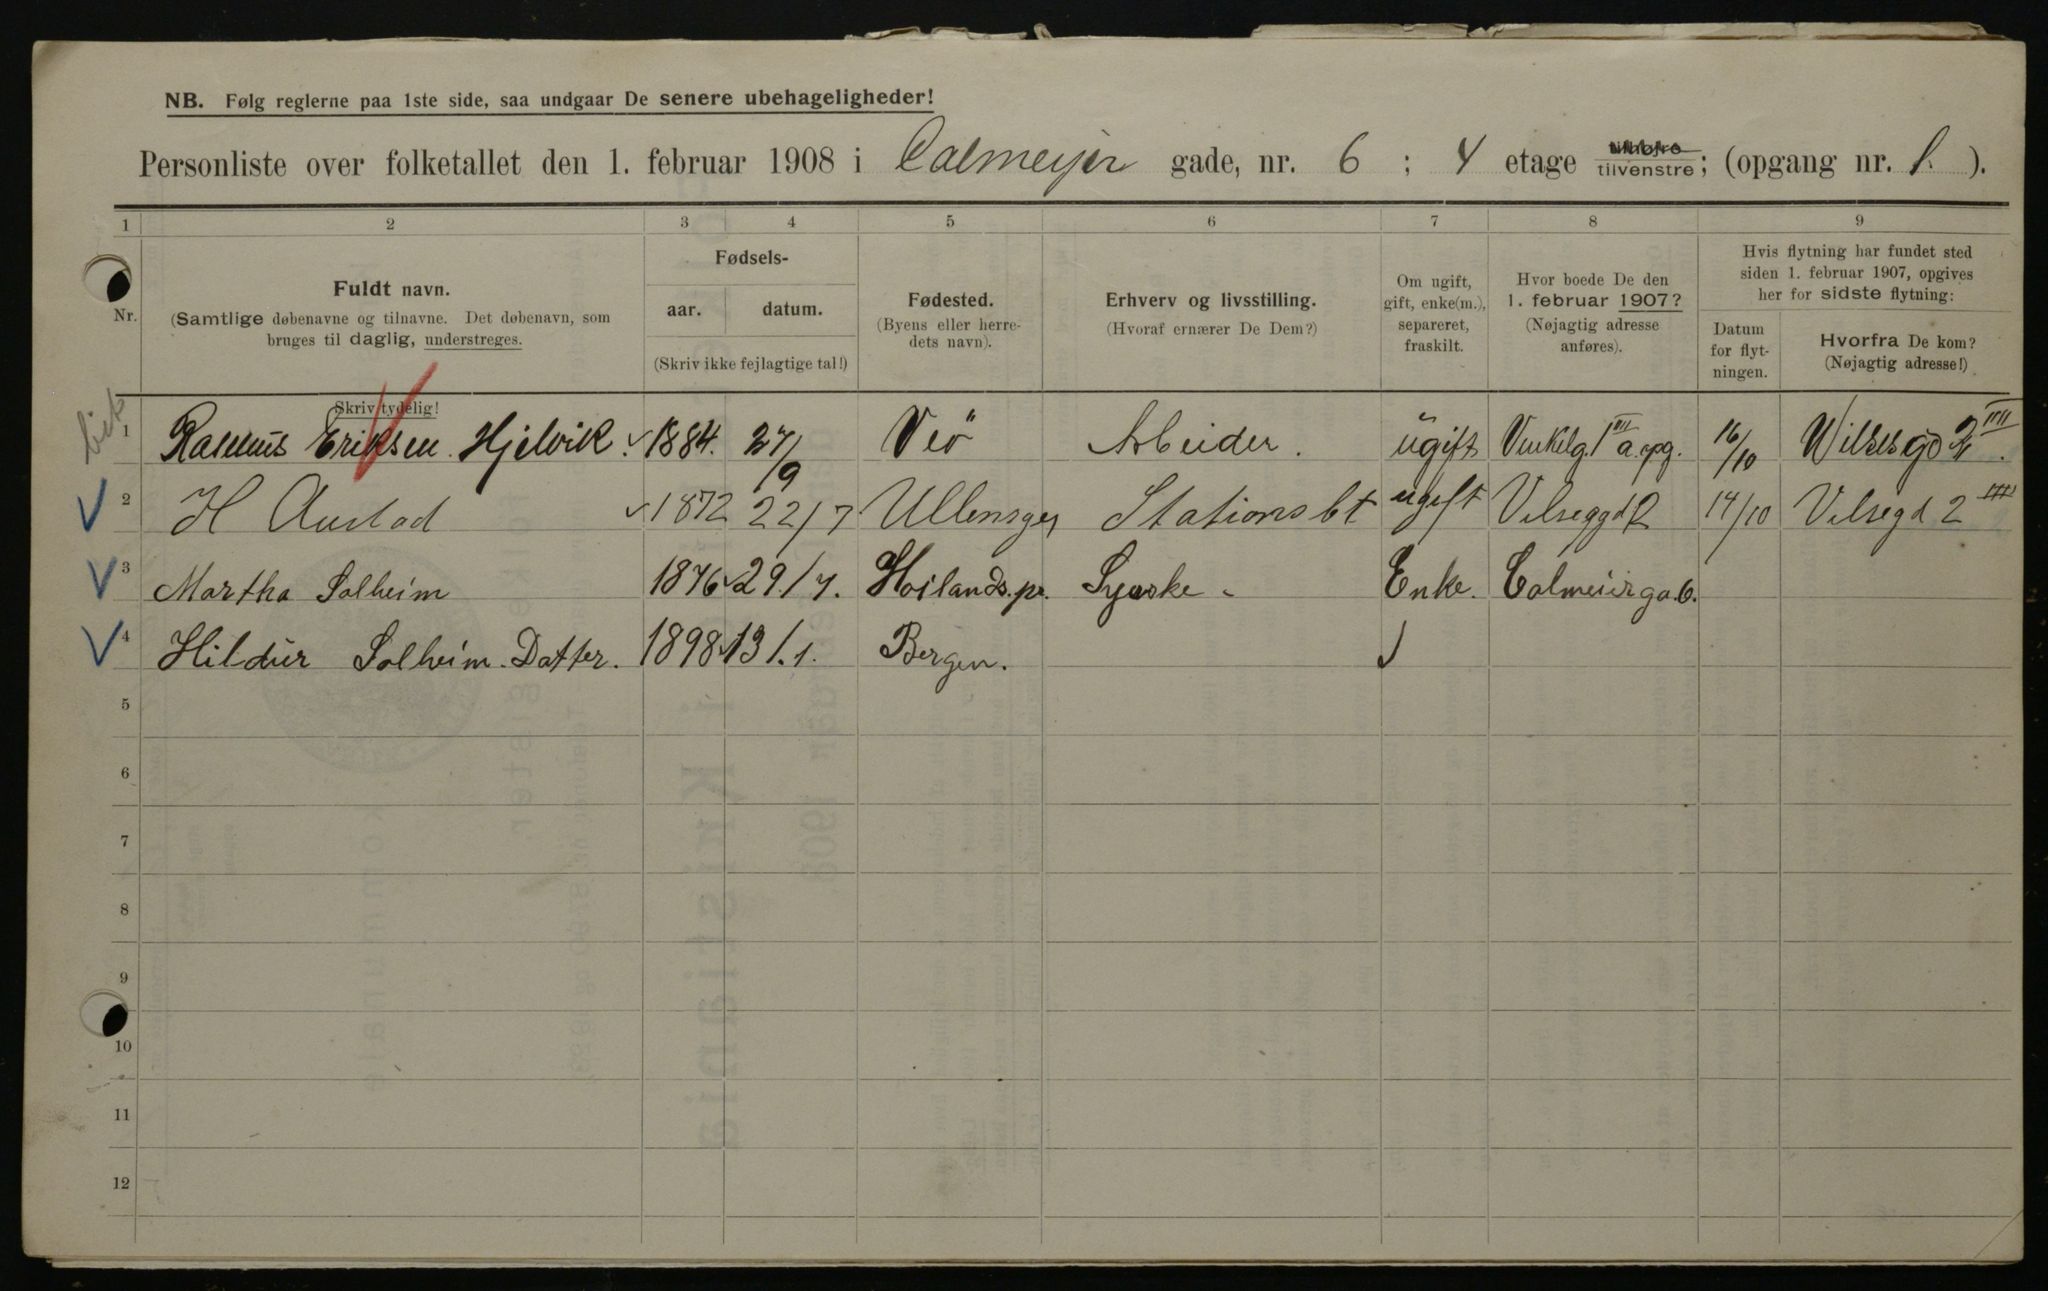 NB. Følg reglerne paa 1ste side, saa undgaar De senere ubehageligheder!
Personliste over folketallet den 1. februar 1908 i Calmeyer gade, nr. 6 ; 4 etage tilvenstre; (opgang nr. 1. ).
1 2 3 4 5 6 7 8 9
Nr.
Fuldt navn.
(Samtlige døbenavne og tilnavne. Det døbenavn, som
bruges til daglig, understreges.
Skriv tydelig!
Fødsels-
aar. datum.
(Skriv ikke fejlagtige tal!)
Fødested.
(Byens eller herre-
dets navn).
Erhverv og livsstilling.
(Hvoraf ernærer De Dem?)
Om ugift,
gift, enke(m.),
separeret,
fraskilt.
Hvor boede De den
1. februar 1907?
(Nøjagtig adresse
anføres).
Hvis flytning har fundet sted
siden 1. februar 1907, opgives
her for sidste flytning:
Datum
for flyt-
ningen.
Hvorfra De kom?
(Nøjagtig adresse!)
1 Rasmus Eriksen Hjelvik. 1884. 27/9 Veö Arbeider. ugift 1 a. opg. 16/10 2
2 H Austad 1872 22/7 Ullensger Stationsbt ugift 2 14/10 Vilsegd 2 IIII
3 Martha Solheim 1876 29./7. Hoilands.pr. Syerske Enke. Calmeierga.6.
4 Hildur Solheim. Datter. 1898 13/.1. Bergen.
5
6
7
8
9
10
11
12